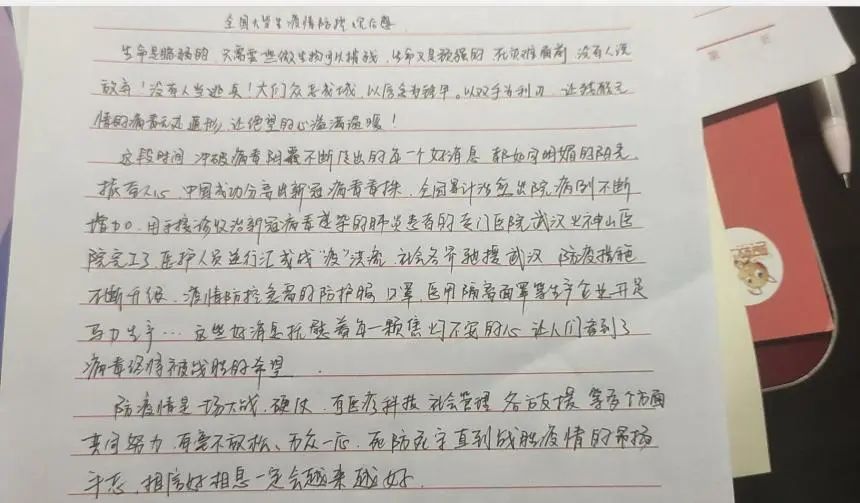 全国大学生疫情防控观后感
生命是脆弱的，只需要些微生物可以摧残，生命又是顽强的，死灾难面前，没有人说
放弃！没有人当逃兵！人们众志成城，以信念为铠甲，以双手为利刃，让残酷无
情的病毒无处遁形，让绝望的心溢满温暖！
这段时间，冲破病毒阴霾不断传出的每一个好消息，都如同明媚的阳光，
振奋人心，中国成功分离出新冠病毒毒株，全国累计治愈出院病例不断
增加，用于接诊收治新冠病毒感染的肺炎患者的专门医院武汉火神山医
院完工了，医护人员逆行汇成战“疫”洪流，社会各界驰援武汉，防疫措施
不断升级，疫情防控急需的防护服，口罩，医用隔离面罩等生产企业开足
马力生产…这些好消息抚慰着每一颗焦灼不安的心，让人们看到了
病毒终将被战胜的希望．
防疫情是一场大战，硬仗，有医疗科技，社会管理，各方支援，等多个方面
共同努力，再毫不放松、万众一心，死防死守直到战胜疫情的昂扬
斗志，相信好消息一定会越来越好．